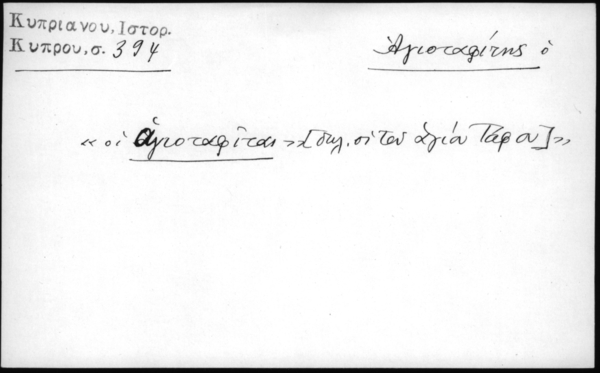 Κυπριανου, Ιστορ.
Κυπρου, σ. 394
Ἁγιοταφίτης ὁ
« οἱ ἁγιοταφῖται » [δηλ. οἱ τοῦ ἁγίου Τάφου] »